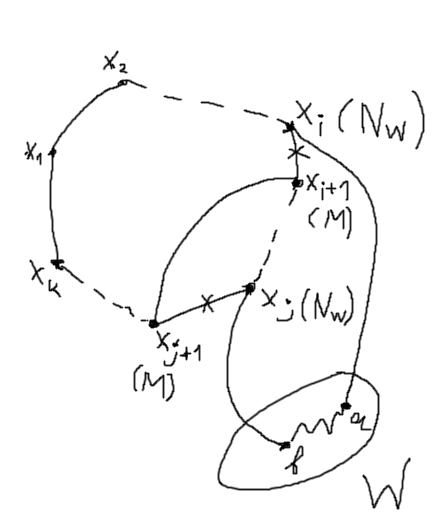 x₂
xᵢ (N_W)
x₁
xᵢ₊₁
(M)
xₖ
xⱼ (N_W)
xⱼ₊₁
(M)
a
b
W